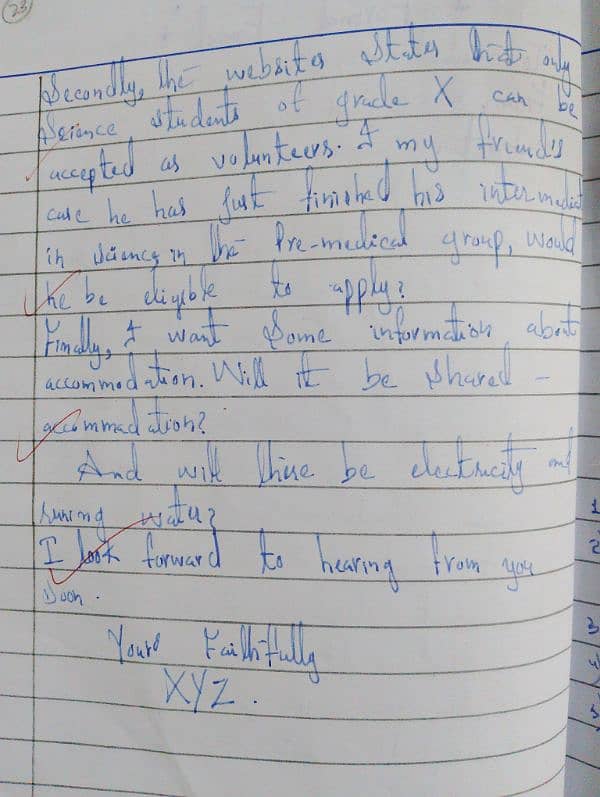 23
Secondly, the websites states that only
Science students of grade X can be
accepted as volunteers. I my friend's
case he has just finished his intermediat
in science in the Pre-medical group, would
he be eligible to apply?
Finally, I want Some information about
accommodation. Will it be shared -
accommadation?
And will there be electricity and
runing water?
I look forward to hearing from you
soon.
Yours Faithfully
XYZ.
1
2
3
4
5